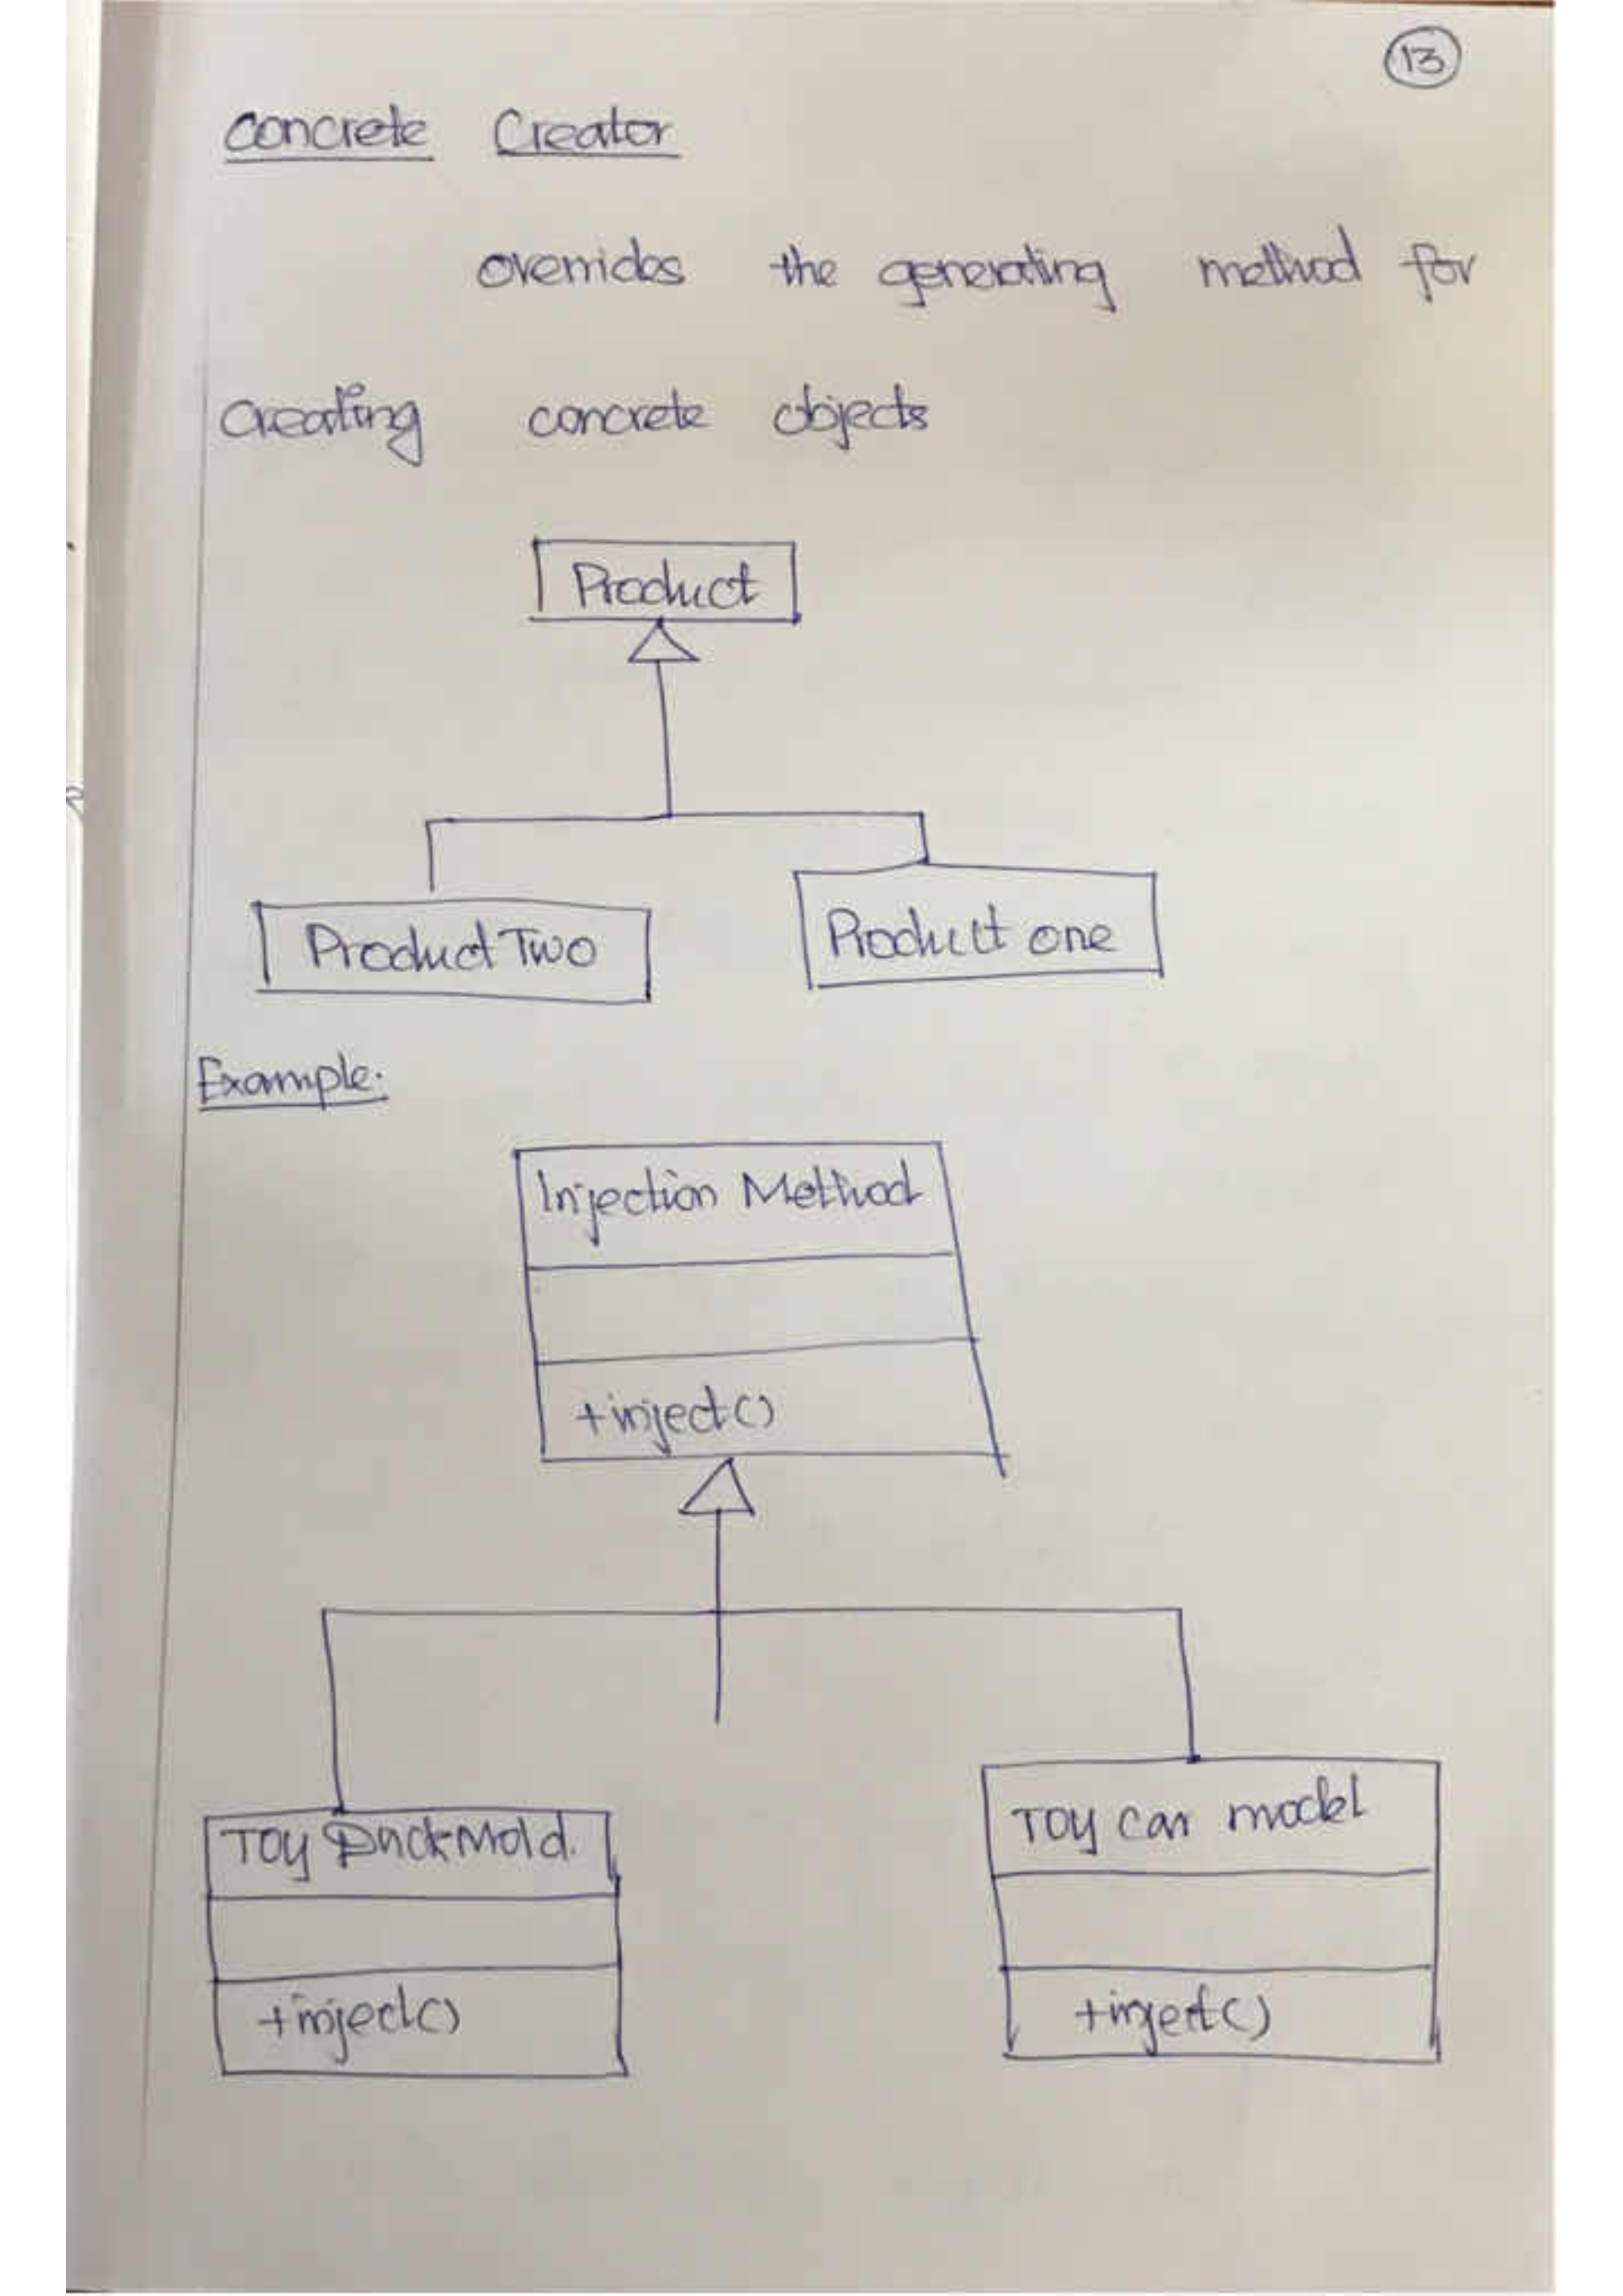 13
Concrete Creator
overrides the generating method for
creating concrete objects
Product
Product Two
Product one
Example:
Injection Method
+inject()
Toy Duck Mold.
Toy car model
+inject()
+inject()